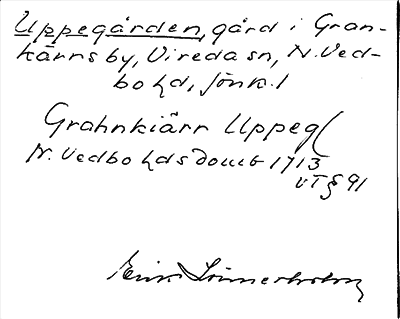 Uppegården, gård i Gran-
kärnsby, Vireda sn, N. Ved-
bo hd, Jönk. l
Grahnkiärr Uppeg
N. Vedbo hds domb 1713
vT § 91
Erik Linnerholm